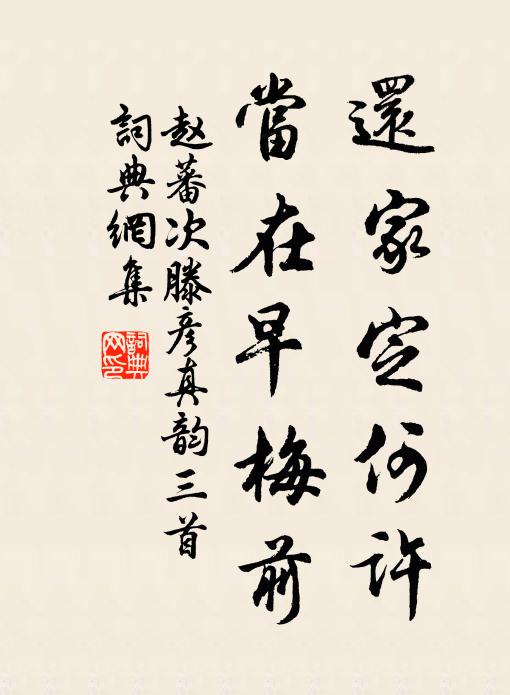 還家定何許
當在早梅前
赵蕃次滕彦真韵三首
詞典網集
詞典网印